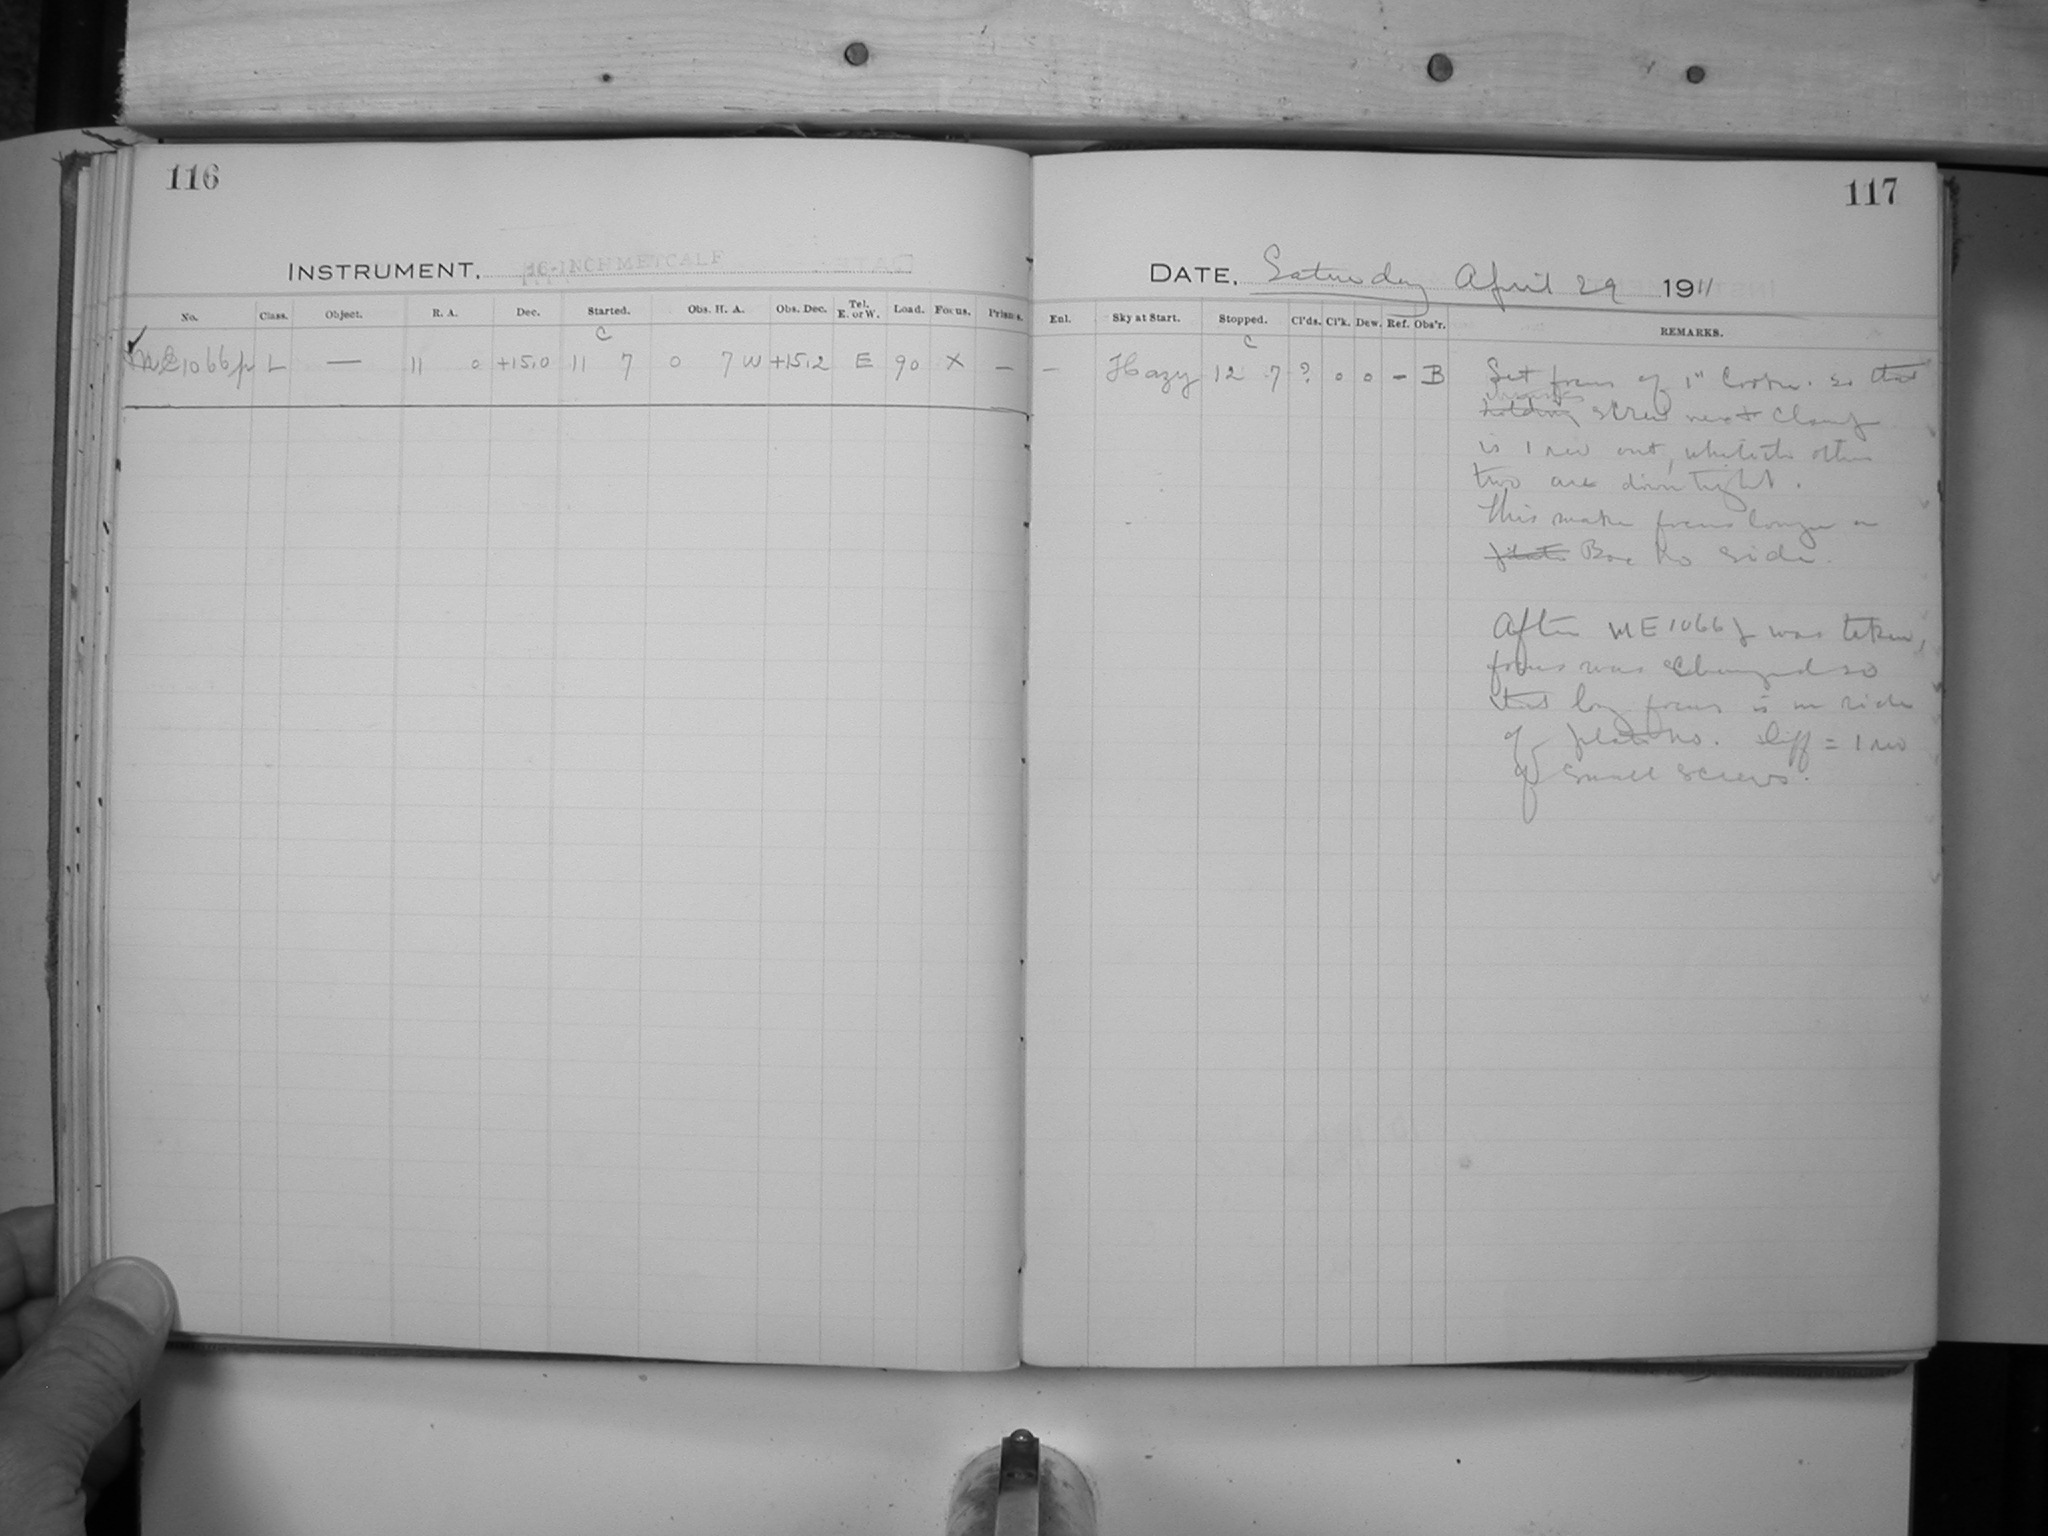 116
INSTRUMENT, 16-INCH METCALF
No. Class. Object. R. A. Dec. Started. Obs. H. A. Obs. Dec. Tel. E. or W. Load. Focus. Prisms.
C
ME1066 L — 11 0 +15.0 11 7 0 7 W +15.2 E 90 X —
117
DATE, Saturday April 29 1911
Enl. Sky at Start. Stopped. Cl'ds. Cl'k. Dew. Ref. Obs'r. REMARKS.
C
— Hazy 12 7 ? 0 0 - B
Set focus of 1" Cooke. so that
holding screw next clamp
is 1 rev out, while the other
two are down tight.
This make focus longer on
plate Box No side.
After ME1066 was taken,
focus was changed so
that long focus is on side
of plate no. Diff = 1 rev
of small screws.